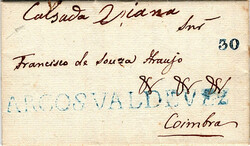 Calsada Viana
Snr
30
Francisco de Souza Araujo
ARCOSVALDEVEZ
Coimbra